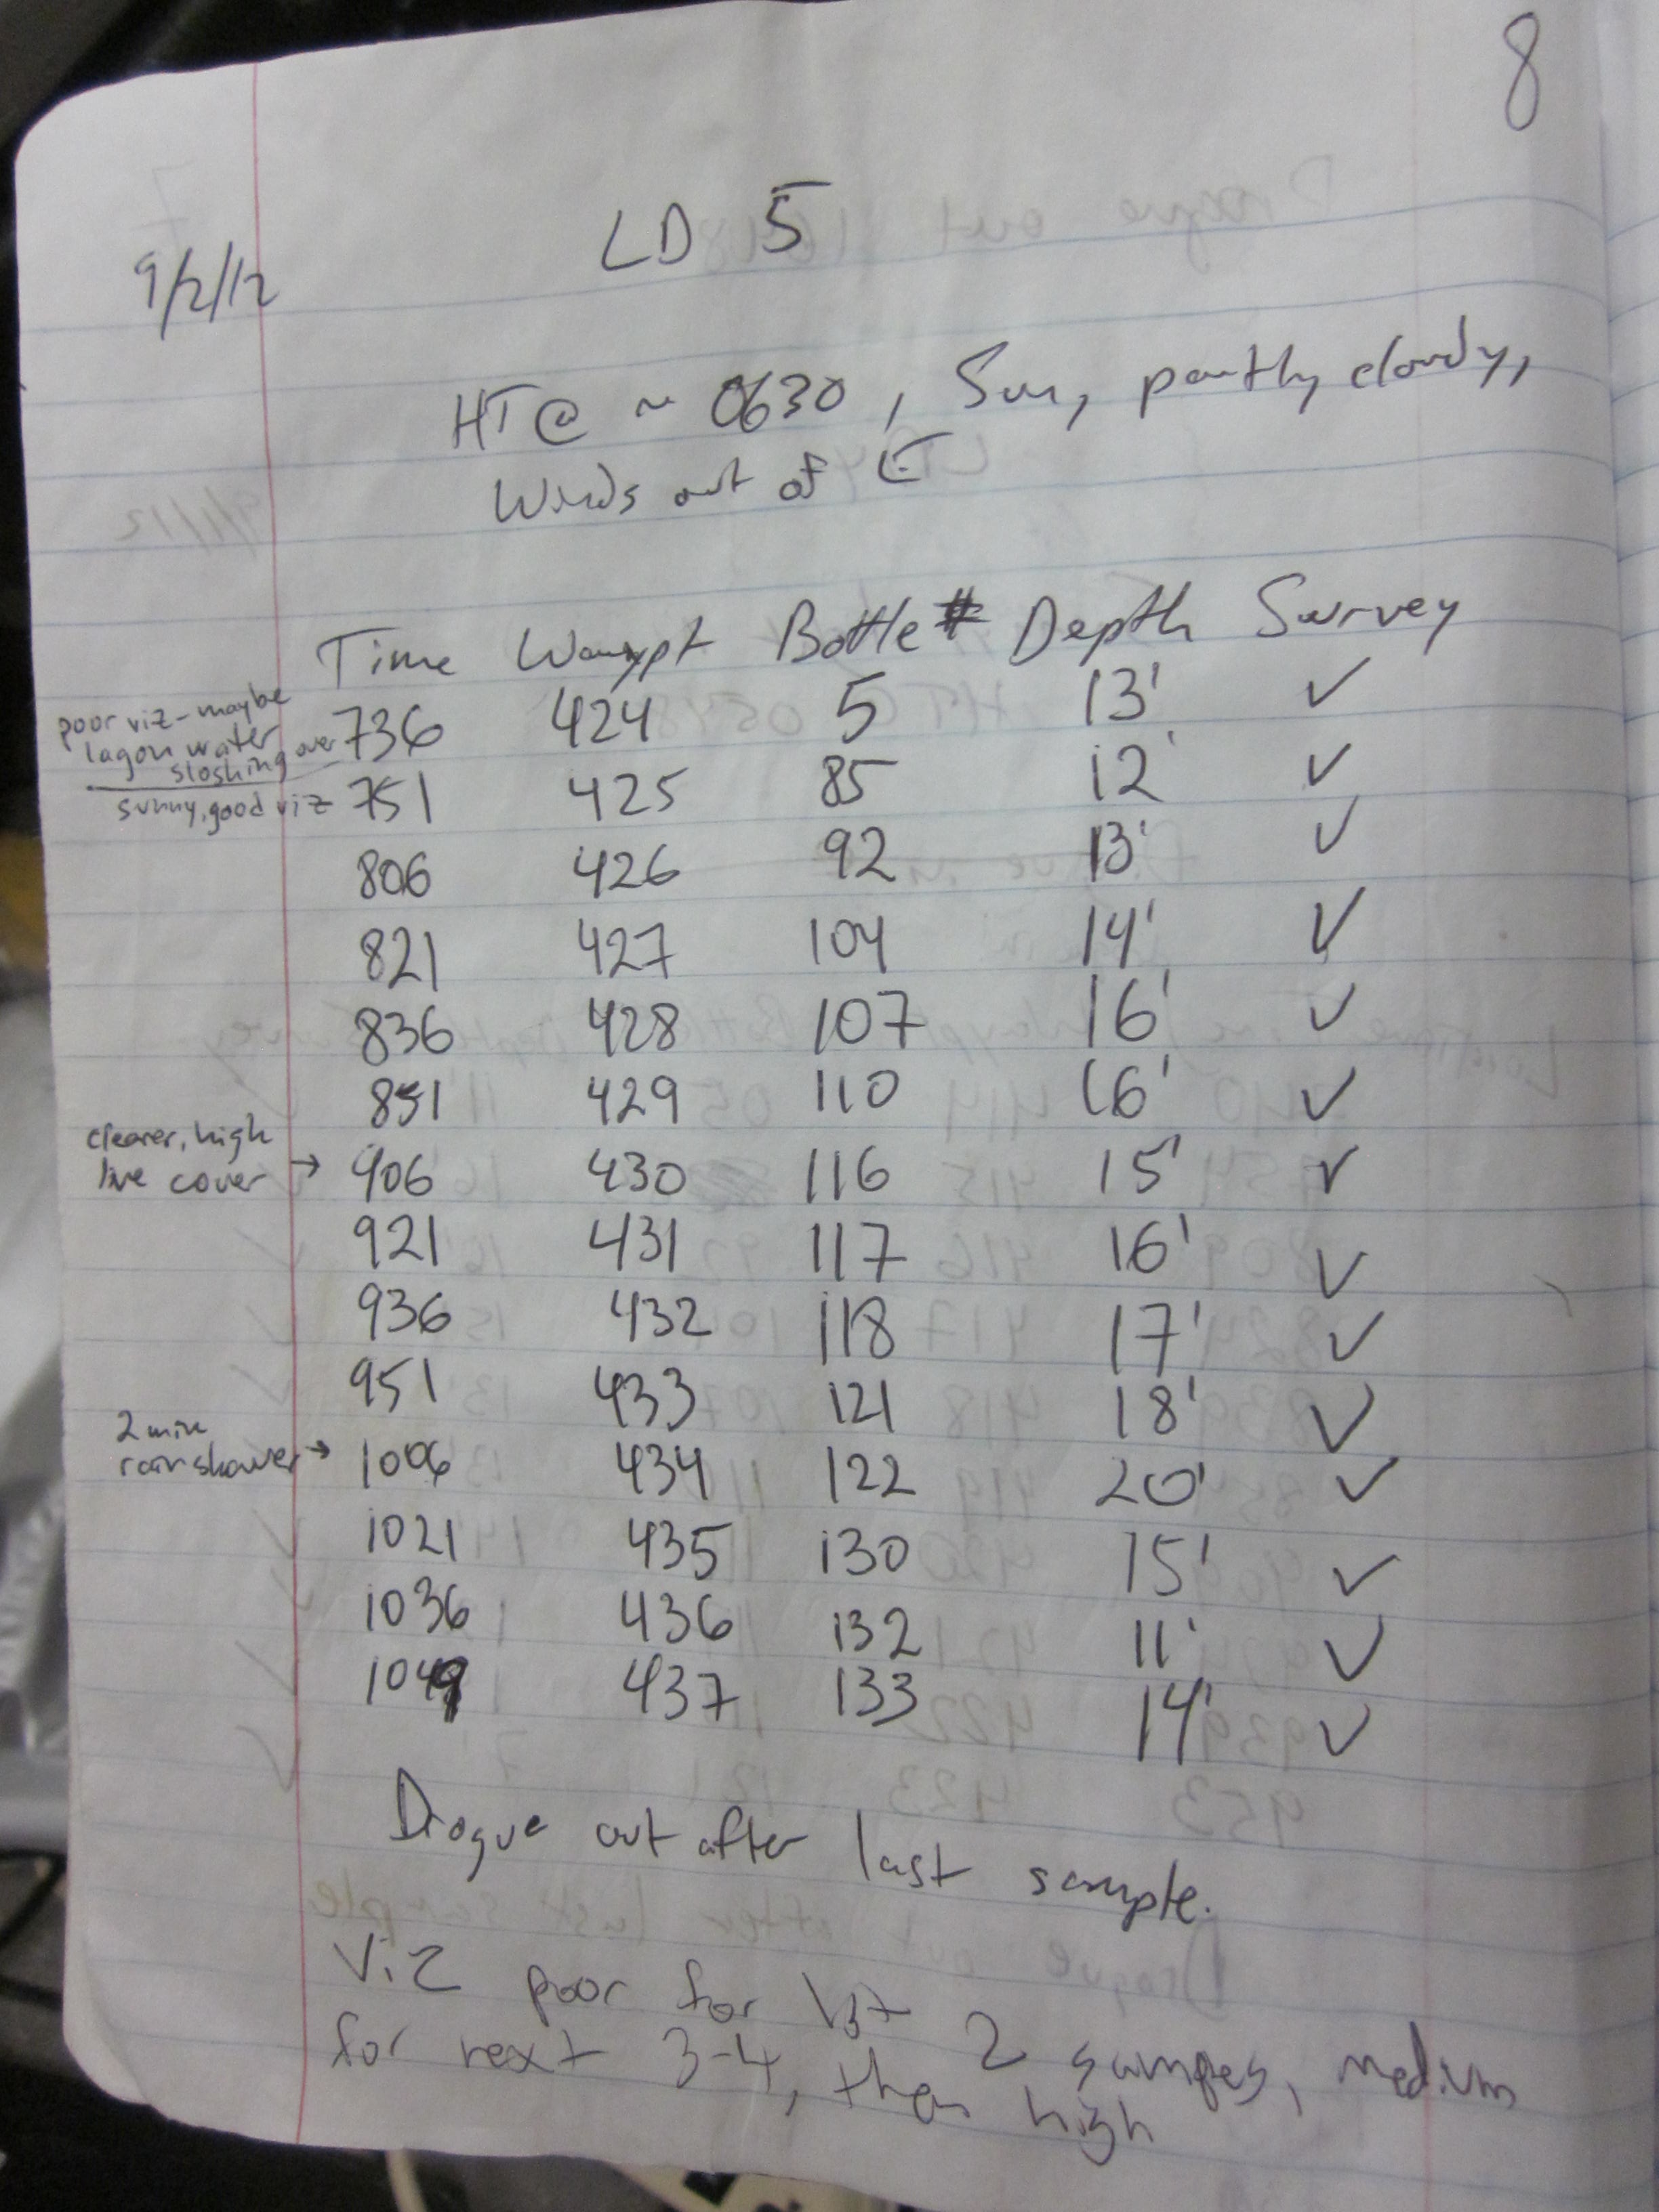 8
LD 5
9/2/12
HT@ ~ 0630, Sun, partly cloudy,
Winds out of E
Time Waypt Bottle# Depth Survey
poor viz-maybe
lagoon water
sloshing over
736 424 5 13' ✓
sunny, good viz 751 425 85 12' ✓
806 426 92 13' ✓
821 427 104 14' ✓
836 428 107 16' ✓
851 429 110 16' ✓
clearer, high
live cover → 906 430 116 15' ✓
921 431 117 16' ✓
936 432 118 17' ✓
951 433 121 18' ✓
2 min
rain shower → 1006 434 122 20' ✓
1021 435 130 15' ✓
1036 436 132 11' ✓
1049 437 133 14' ✓
Drogue out after last sample.
Viz poor for 1st 2 samples, medium
for next 3-4, then high